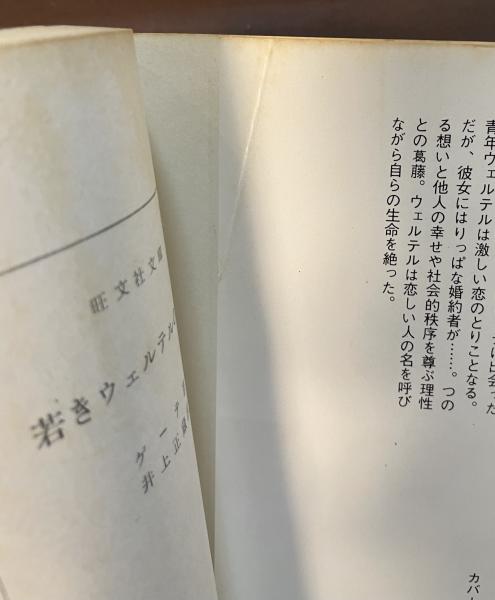 旺文社文庫
若きウェルテル
ゲーテ
井上正
に出会った
青年ウェルテルは激しい恋のとりことなる。
だが、彼女にはりっぱな婚約者が……。つの
る想いと他人の幸せや社会的秩序を尊ぶ理性
との葛藤。ウェルテルは恋しい人の名を呼び
ながら自らの生命を絶った。
カバー